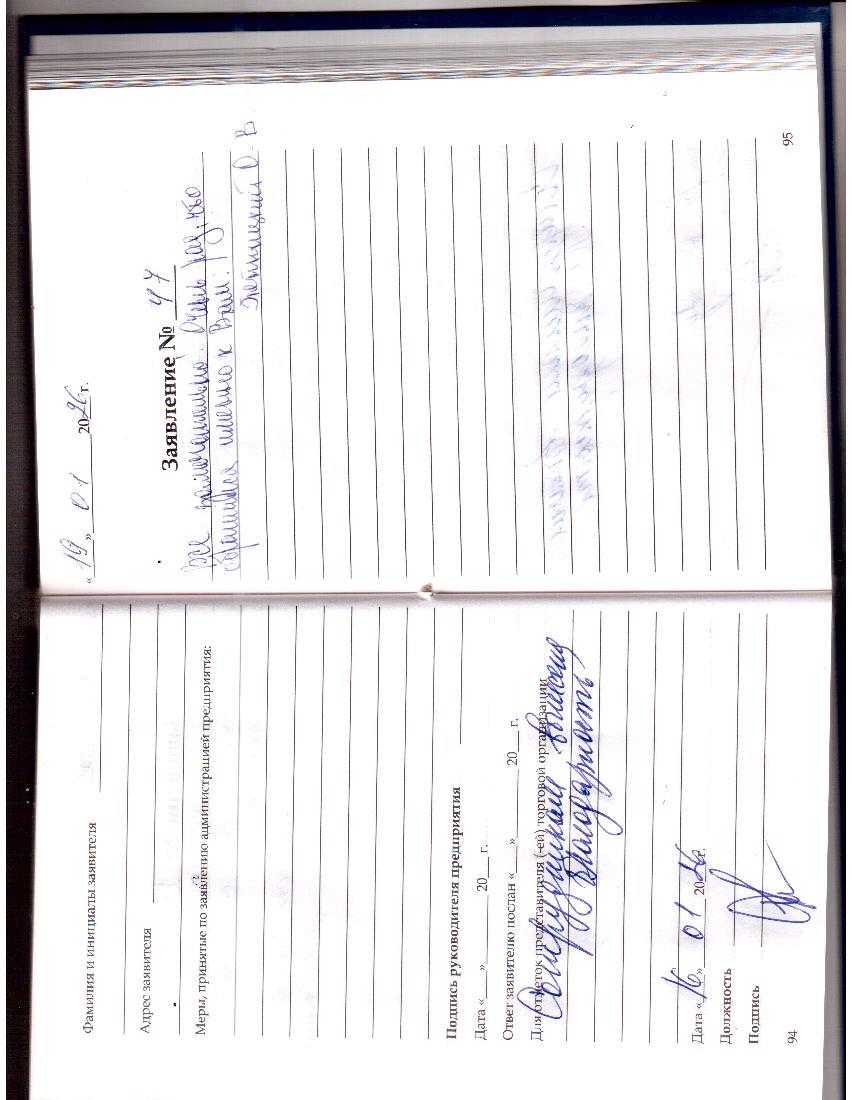 Фамилия и инициалы заявителя
Адрес заявителя
Меры, принятые по заявлению администрацией предприятия:
Подпись руководителя предприятия
Дата «___»________20___ г.
Ответ заявителю послан «___»________20___ г.
Для отметок представителя (-ей) торговой организации
Сотрудникам вынесена
благодарность
Дата «16» 01 2026г.
Должность
Подпись
94
«19» 01 2026г.
Заявление № 47
Все замечательно. Очень рад, что
обратился именно к Вам.
О. В
95